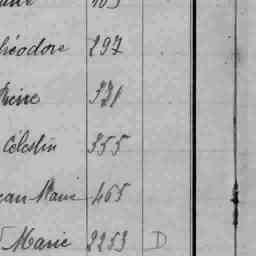 héodore 297
Reine 321
Célestin 355
ean Marie 465
Marie 2253 D